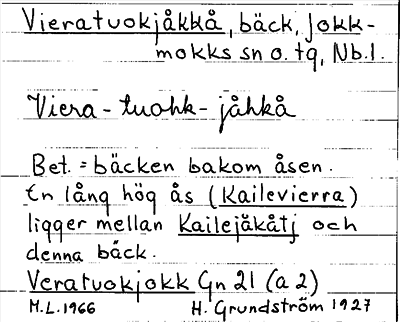 Vieratuokjåkkå, bäck, Jokk-
mokks sn o. tg, Nb. l.
Viera - tuohk - jåhkå
Bet. = bäcken bakom åsen.
En lång hög ås (Kailevierra)
ligger mellan Kailejåkåtj och
denna bäck.
Veratuokjokk Gn 21 (a 2)
M.L. 1966 H. Grundström 1927